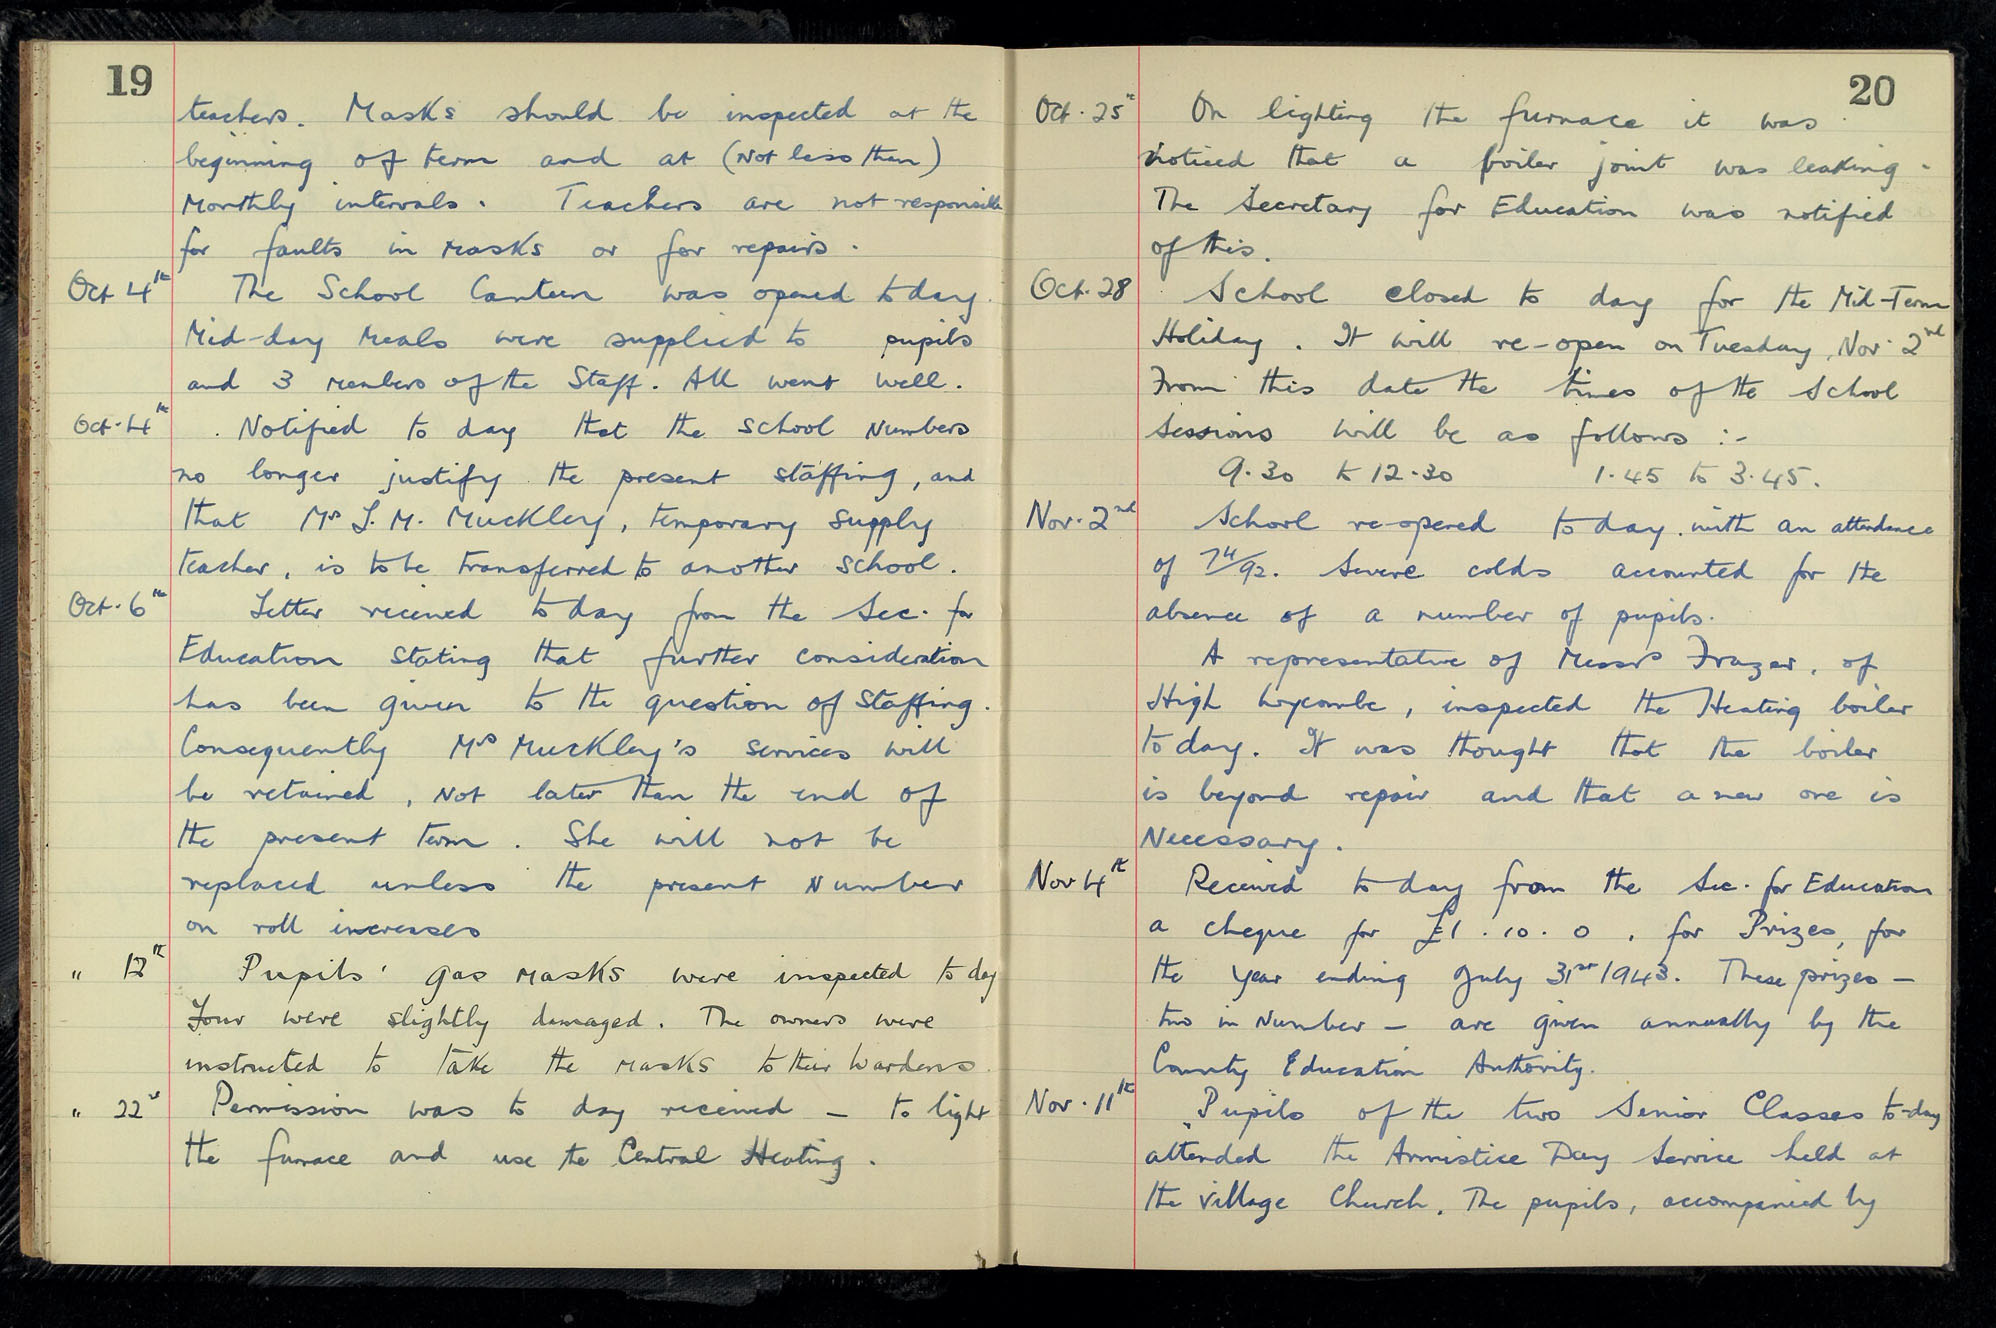 19
teachers. Masks should be inspected at the
beginning of term and at (not less than)
monthly intervals. Teachers are not responsible
for faults in masks or for repairs.
Oct 4th The School Canteen was opened today.
Mid-day Meals were supplied to pupils
and 3 members of the Staff. All went well.
Oct. 4th Notified to day that the school numbers
no longer justify the present staffing, and
that Mrs J. M. Muckley, temporary supply
teacher, is to be transferred to another school.
Oct. 6th Letter received today from the Sec. for
Education stating that further consideration
has been given to the question of staffing.
Consequently Mrs Muckley's services will
be retained, not later than the end of
the present term. She will not be
replaced unless the present number
on roll increases
" Pupils' gas masks were inspected to day
Four were slightly damaged. The owners were
instructed to take the masks to their Wardens.
" 22nd Permission was to day received — to light
the furnace and use the Central Heating.
20
Oct. 25th On lighting the furnace it was
noticed that a boiler joint was leaking.
The Secretary for Education was notified
of this.
Oct. 28 School closed to day for the Mid-Term
Holiday. It will re-open on Tuesday, Nov. 2nd
From this date the times of the School
sessions will be as follows :-
9.30 to 12.30 1.45 to 3.45.
Nov. 2nd School re-opened today with an attendance
of 74/92. Severe colds accounted for the
absence of a number of pupils.
A representative of Messrs Frazer, of
High Wycombe, inspected the Heating boiler
to day. It was thought that the boiler
is beyond repair and that a new one is
necessary.
Nov 4th Received to day from the Sec. for Education
a cheque for £1.10.0, for Prizes, for
the year ending July 31st 1943. These prizes —
two in number — are given annually by the
County Education Authority.
Nov. 11th Pupils of the two Senior Classes to-day
attended the Armistice Day Service held at
the village Church. The pupils, accompanied by